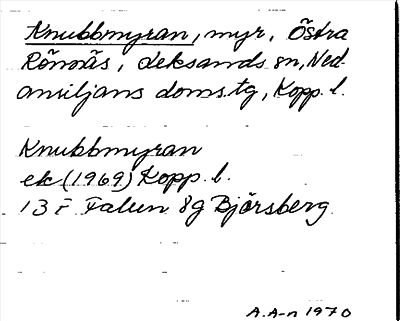 Knubbmyran, myr, Östra
Rönnäs, Leksands sn, Ned.
ansiljans doms.tg, Kopp. l.
Knubbmyran
ek (1969) Kopp. l.
13 F Falun 8g Björsberg
A.A-n 1970